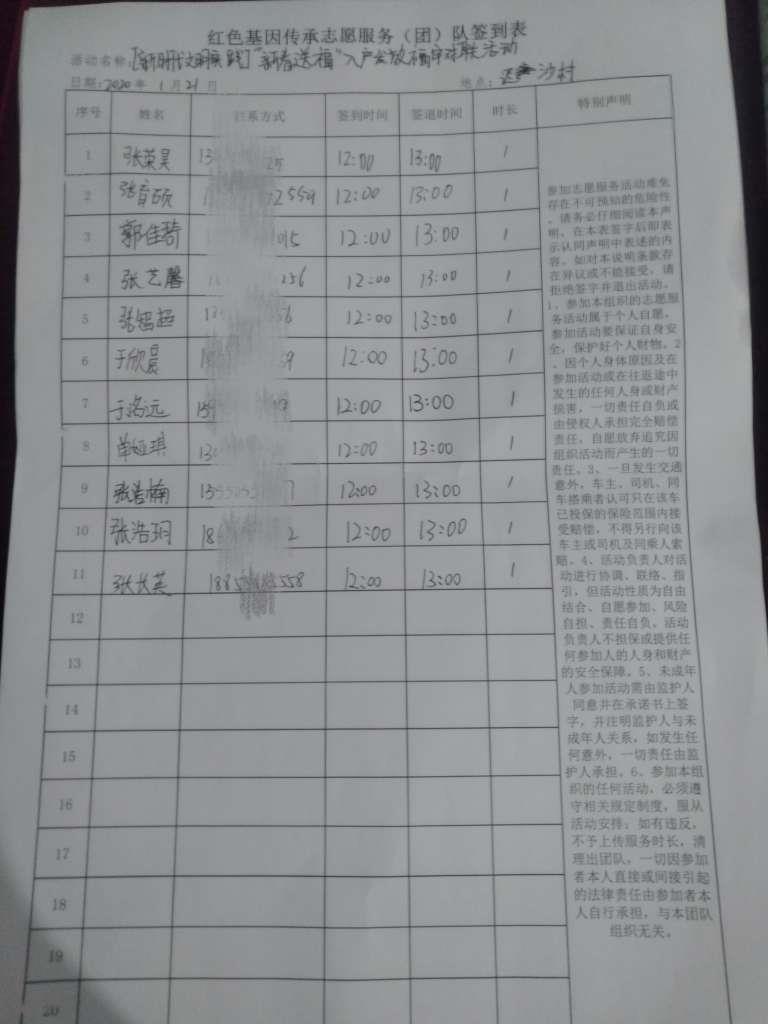 红色基因传承志愿服务（团）队签到表
活动名称：[新时代文明实践]"新春送福"入户发放福字对联活动
日期：2020年 1月21日 地点： 沙村
序号 姓名 联系方式 签到时间 签退时间 时长 特别声明
1 张荣昊 13 25 12:00 13:00 1
2 张育硕 1 2559 12:00 13:00 1
3 郭佳琦 015 12:00 13:00 1
4 张艺馨 256 12:00 13:00 1
5 张 超 56 12:00 13:00 1
6 于欣晨 9 12:00 13:00 1
7 于洺远 159 12:00 13:00 1
8 单娅琪 130 12:00 13:00 1
9 张浩楠 1355055 7 12:00 13:00 1
10 张浩珂 18 2 12:00 13:00 1
11 张长芙 1885 558 12:00 13:00 1
12
13
14
15
16
17
18
19
20
参加志愿服务活动难免
存在不可预知的危险性
，请务必仔细阅读本声
明，在本表签字后即表
示认同声明中表述的内
容。如对本说明条款存
在异议或不能接受，请
拒绝签字并退出活动。
1、参加本组织的志愿服
务活动属于个人自愿，
参加活动要保证自身安
全，保护好个人财物。2
、因个人身体原因及在
参加活动或在往返途中
发生的任何人身或财产
损害，一切责任自负或
由侵权人承担完全赔偿
责任，自愿放弃追究因
组织活动而产生的一切
责任。3、一旦发生交通
意外，车主、司机、同
车搭乘者认可只在该车
已投保的保险范围内接
受赔偿，不得另行向该
车主或司机及同乘人索
赔。4、活动负责人对活
动进行协调、联络、指
引，但活动性质为自由
结合、自愿参加、风险
自担、责任自负。活动
负责人不担保或提供任
何参加人的人身和财产
的安全保障。5、未成年
人参加活动需由监护人
同意并在承诺书上签
字，并注明监护人与未
成年人关系，如发生任
何意外，一切责任由监
护人承担。6、参加本组
织的任何活动，必须遵
守相关规定制度，服从
活动安排；如有违反，
不予上传服务时长，清
理出团队，一切因参加
者本人直接或间接引起
的法律责任由参加者本
人自行承担，与本团队
组织无关。